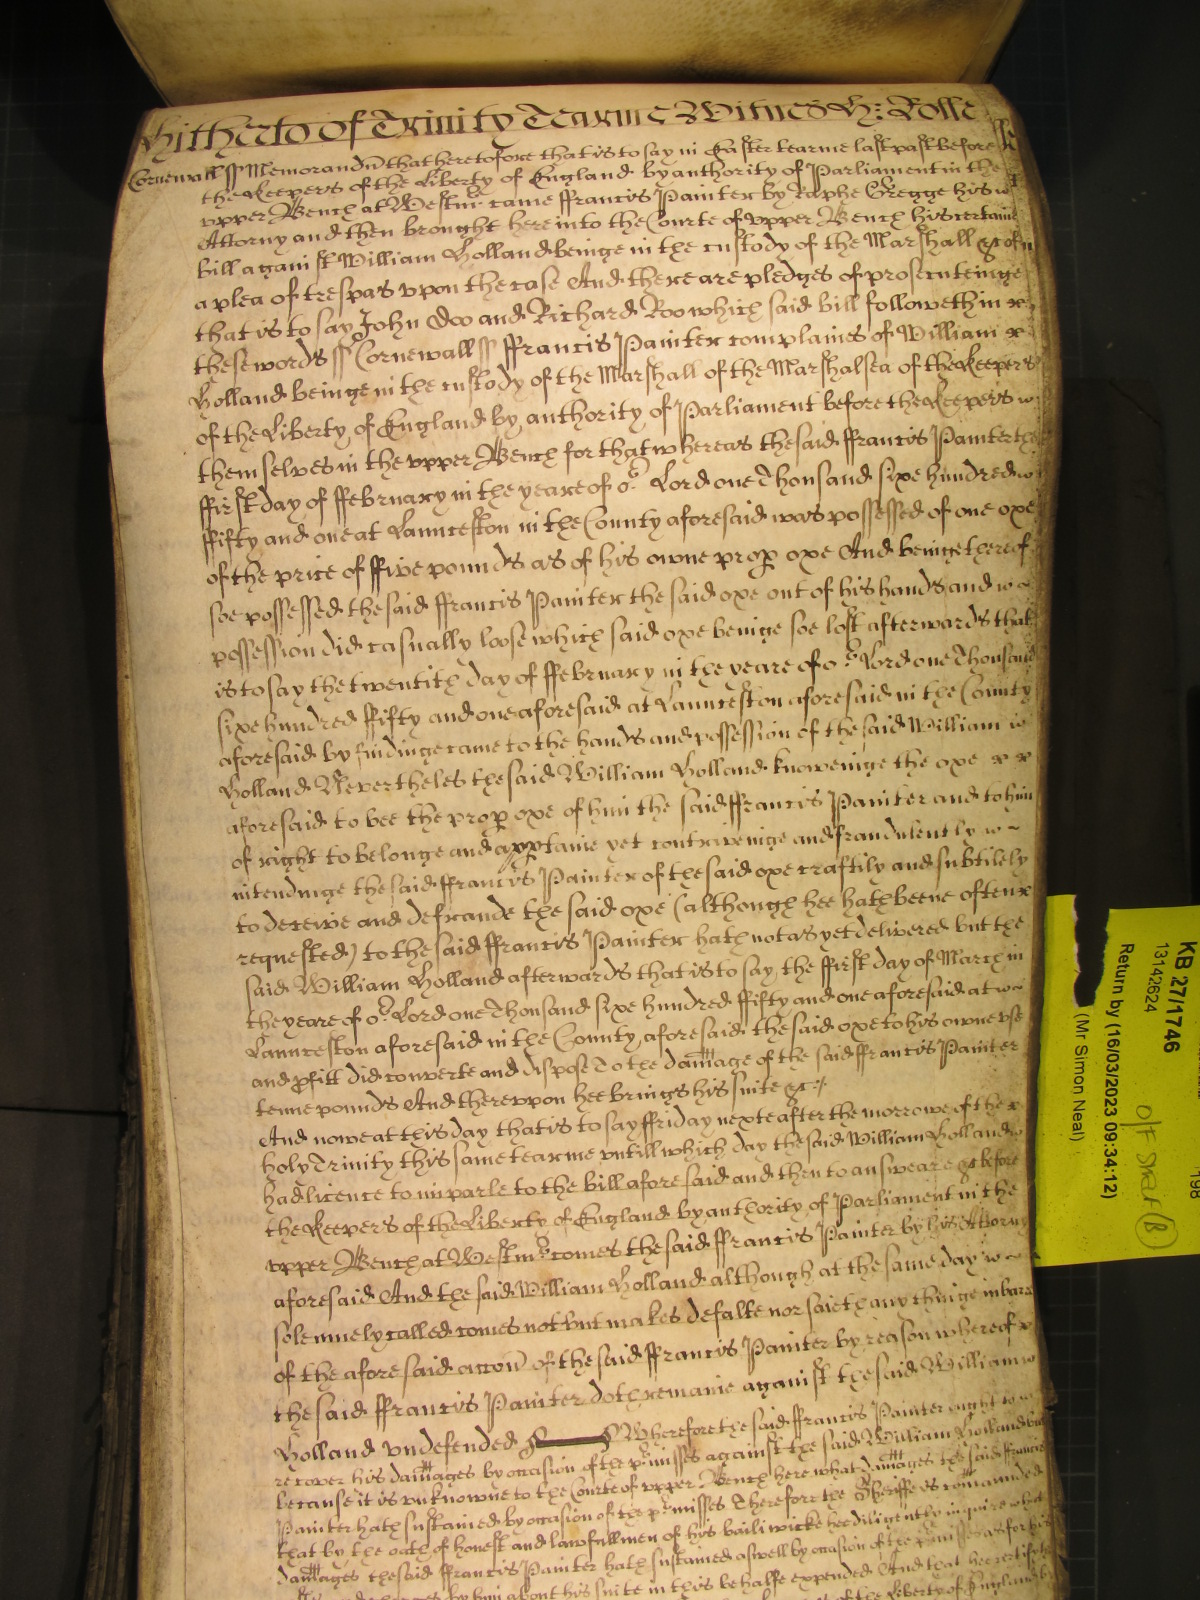 Hitherto of Trinity Tearme Witnes H: Rolle
Cornewall ss Memorand that heretofore that is to say in Easter tearme last past before
the Keepers of the Liberty of England by authority of Parliament in the
upper Bench at Westmr came ffrancis Painter by Raphe Gregge his
Attorny and then brought here into the Courte of upper Bench his certaine
bill against William Holland beinge in the custody of the Marshall &c of
a plea of trespas upon the case And there are pledges of prosecuteinge
that is to say John Doo and Richard Roo which said bill followeth in
these words ss Cornewall ss ffrancis Painter complaines of William
Holland beinge in the custody of the Marshall of the Marshalsea of the Keepers
of the Liberty of England by authority of Parliament before the Keepers
themselves in the upper Bench for that whereas the said ffrancis Painter the
ffirst day of ffebruary in the yeare of or Lord one Thousand sixe hundred
ffifty and one at Launceston in the County aforesaid was possessed of one oxe
of the price of ffive pounds as of his owne prop oxe And beinge thereof
soe possessed the said ffrancis Painter the said oxe out of his hands and
possession did casually loose which said oxe beinge soe lost afterwards that
is to say the twentith day of ffebruary in the yeare of or Lord one Thousand
sixe hundred ffifty and one aforesaid at Launceston aforesaid in the County
aforesaid by findinge came to the hands and possession of the said William
Holland Nevertheles the said William Holland knoweinge the oxe
aforesaid to bee the prop oxe of him the said ffrancis Painter and to him
of right to belonge and apptaine yet contriveinge and fraudulently
intendinge the said ffrancis Painter of the said oxe craftily and subtilely
to deceive and defraude the said oxe (although hee hath beene often
requested) to the said ffrancis Painter hath not as yet delivered but the
said William Holland afterwards that is to say the ffirst day of March in
the yeare of or Lord one Thousand sixe hundred ffifty and one aforesaid at
Launceston aforesaid in the County aforesaid the said oxe to his owne use
and pfitt did converte and dispose To the damage of the said ffrancis Painter
tenne pounds And thereupon hee brings his suite &c
And nowe at this day that is to say ffriday nexte after the morrowe of the
holy Trinity this same tearme untill which day the said William Holland
had licence to imparle to the bill aforesaid and then to answeare &c before
the Keepers of the Liberty of England by authority of Parliament in the
upper Bench at Westmr comes the said ffrancis Painter by his Attorny
aforesaid And the said William Holland although at the same day
solemnely called comes not but makes defalte nor saieth any thinge in barr
of the aforesaid accon of the said ffrancis Painter by reason whereof
the said ffrancis Painter doth remaine against the said William
Holland undefended Wherefore the said ffrancis Painter ought to
recover his damages by occasion of the pmisses against the said William Holland but
because it is unknowne to the Courte of upper Bench here what damages the said ffrancis
Painter hath sustained by occasion of the pmisses Therefore the Sheriffe is comanded
that by the oath of honest and lawfull men of his bailiwicke hee diligently inquire what
damages the said ffrancis Painter hath sustained aswell by occasion of the pmisses as for his
by him about his suite in this behalfe expended And that hee certify
of the Liberty of England
KB 27/1746
13142624
Return by (16/03/2023 09:34:12)
(Mr Simon Neal)